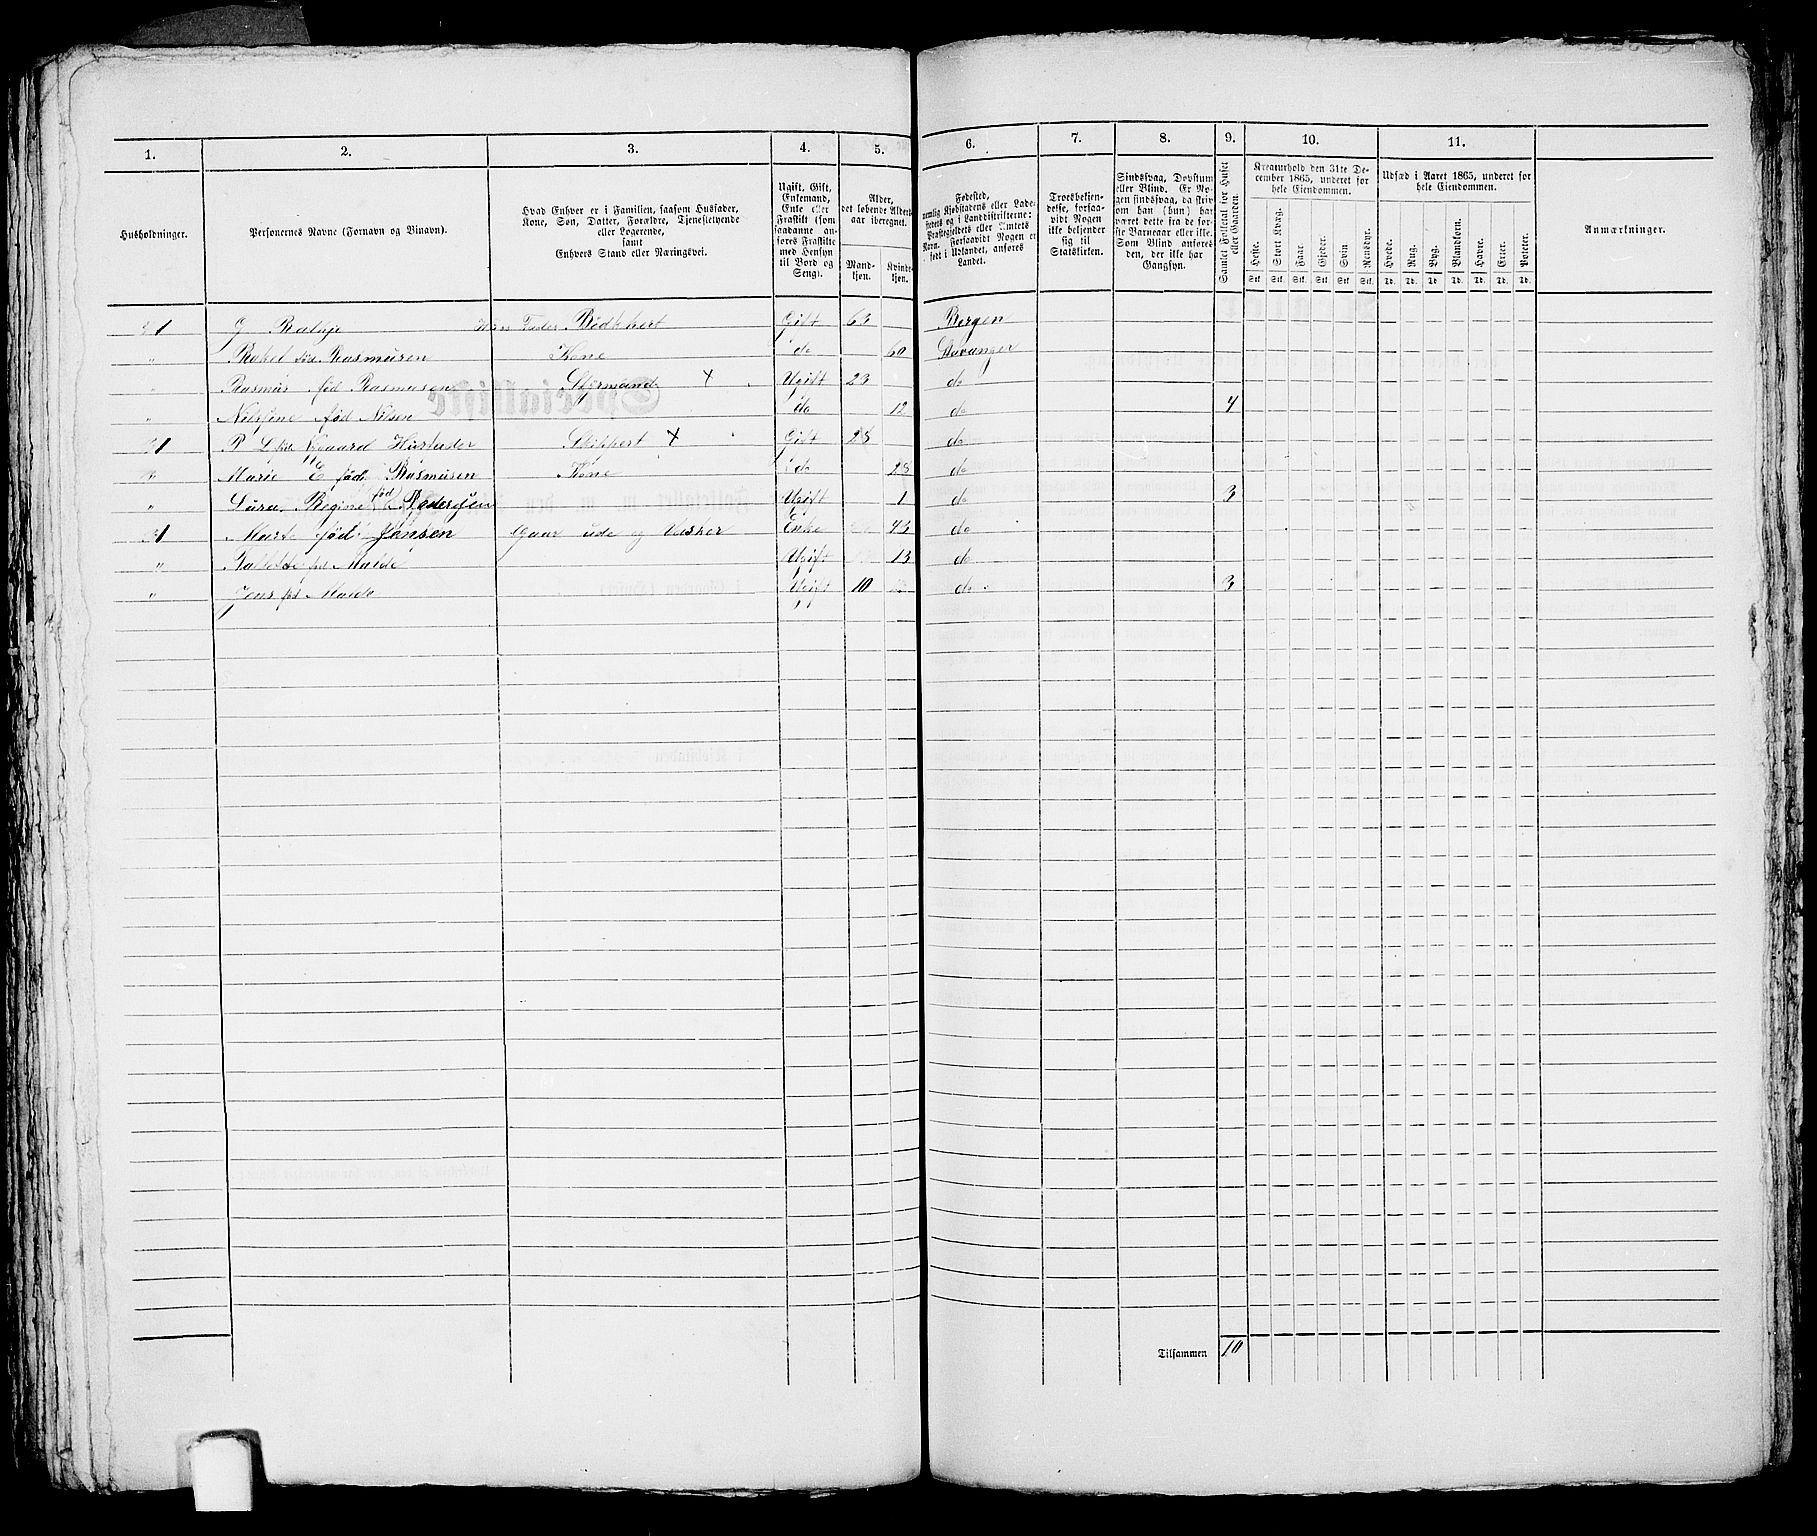 1. 2. 3. 4. 5. 6. 7. 8. 9. 10. 11.
Husholdninger.
Personernes Navne (Fornavn og Tilnavn).
Hvad Enhver er i Familien, saasom Husfader,
Kone, Søn, Datter, Forældre, Tjenestetyende
eller Logerende,
samt
Enhvers Stand eller Næringsvei.
Ugift, Gift,
Enkemand,
Enke eller
Fraskilt (som
saadanne an-
føres Fraskilte
med Hensyn
til Bord og
Seng).
Alder,
det løbende Alders-
aar iberegnet.
Mand-
kjøn.
Kvinde-
kjøn.
Fødested,
nemlig Kjøbstadens eller Lade-
stedets og i Landdistrikterne:
Præstegjeldets eller Amtets
Navn. Forsaavidt Nogen er
født i Udlandet, anføres
Landet.
Troesbekjen-
delse, forsaa-
vidt Nogen
ikke bekjender
sig til
Statskirken.
Sindssvag, Døvstum
eller Blind. Er No-
gen sindssvag, da skri-
ves om han (hun) har
været dette fra de før-
ste Barneaar eller ikke.
Som Blind anføres
den, der ikke har
Gangsyn.
Samlet Folketal for Huset
eller Gaarden.
Kreaturhold den 31te De-
cember 1865, underet for
hele Eiendommen.
Heste.
Stort Kvæg.
Faar.
Gjeder.
Svin
Rensdyr.
Stk. Stk. Stk. Stk. Stk. Stk.
Udsæd i Aaret 1865, underet for
hele Eiendommen.
Hvede.
Rug.
Byg.
Blandkorn.
Havre.
Erter.
Poteter.
Td. Td. Td. Td. Td. Td. Td.
Anmærkninger.
1 Bødkker Gift 63 Bergen
" Rakel Rasmusen Kone do 60 Stavanger
" Rasmus fød Rasmusen Styrmand X Ugift 23 do
" fød Nilsen do 12 do 4
1 Skipper X Gift 28 do
Marie E fød Rasmusen Kone do 28 do
" Regine fød Pedersen Ugift 1 do 3
1 Marte fød Jansen Gaar ude og Vasker Enke 43 do
" Malde Ugift 13 do
" Jens Malde Ugift 10 do 3
Tilsammen 10